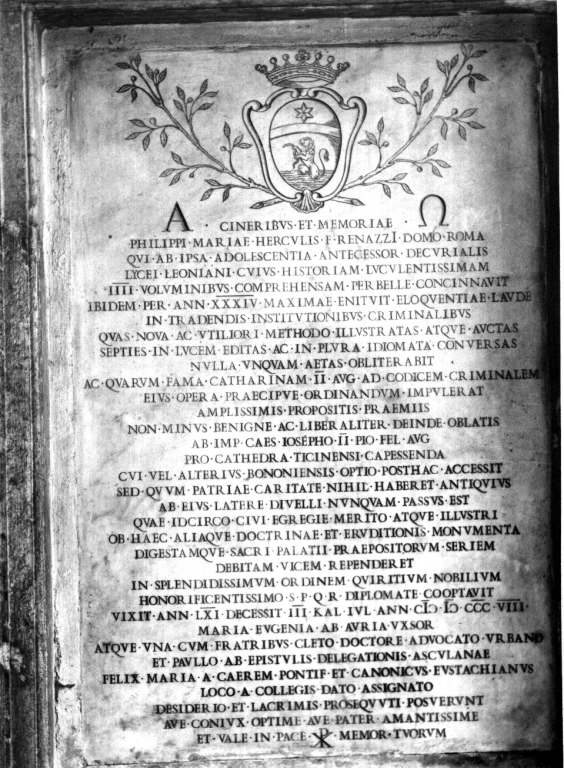 A · CINERIBVS · ET · MEMORIAE · Ω
PHILIPPI · MARIAE · HERCVLIS · F · RENAZZI · DOMO · ROMA
QVI · AB · IPSA · ADOLESCENTIA · ANTECESSOR · DECVRIALIS
LYCEI · LEONIANI · CVIVS · HISTORIAM · LVCVLENTISSIMAM
IIII · VOLVMINIBVS · COMPREHENSAM · PERBELLE · CONCINNAVIT
IBIDEM · PER · ANN · XXXIV · MAXIMAE · ENITVIT · ELOQVENTIAE · LAVDE
IN · TRADENDIS · INSTITVTIONIBVS · CRIMINALIBVS
QVAS · NOVA · AC · VTILIORI · METHODO · ILLVSTRATAS · ATQVE · AVCTAS
SEPTIES · IN · LVCEM · EDITAS · AC · IN · PLVRA · IDIOMATA · CONVERSAS
NVLLA · VNQVAM · AETAS · OBLITERABIT ·
AC · QVARVM · FAMA · CATHARINAM · II · AVG · AD · CODICEM · CRIMINALEM
EIVS · OPERA · PRAECIPVE · ORDINANDVM · IMPVLERAT
AMPLISSIMIS · PROPOSITIS · PRAEMIIS
NON · MINVS · BENIGNE · AC · LIBERALITER · DEINDE · OBLATIS
AB · IMP · CAES · IOSÉPHO · II · PIO · FEL · AVG
PRO · CATHEDRA · TICINENSI · CAPESSENDA
CVI · VEL · ALTERIVS · BONONIENSIS · OPTIO · POSTHAC · ACCESSIT
SED · QVVM · PATRIAE · CARITATE · NIHIL · HABERET · ANTIQVIVS
AB · EIVS · LATERE · DIVELLI · NVNQVAM · PASSVS · EST
QVAE · IDCIRCO · CIVI · EGREGIE · MERITO · ATQVE · ILLVSTRI
OB · HAEC · ALIAQVE · DOCTRINAE · ET · ERVDITIONIS · MONVMENTA
DIGESTAMQVE · SACRI · PALATII · PRAEPOSITORVM · SERIEM
DEBITAM · VICEM · REPENDERET
IN · SPLENDIDISSIMVM · ORDINEM · QVIRITIVM · NOBILIVM
HONORIFICENTISSIMO · S · P · Q · R · DIPLOMATE · COOPTAVIT
VIXIT · ANN · LXI · DECESSIT · III · KAL · IVL · ANN · CIƆ · IƆ · CCC · VIII ·
MARIA · EVGENIA · AB · AVRIA · VXSOR
ATQVE · VNA · CVM · FRATRIBVS · CLETO · DOCTORE · ADVOCATO · VRBANO
ET · PAVLLO · AB · EPISTVLIS · DELEGATIONIS · ASCVLANAE
FELIX · MARIA · A · CAEREM · PONTIF · ET · CANONICVS · EVSTACHIANVS
LOCO · A · COLLEGIS · DATO · ASSIGNATO
DESIDERIO · ET · LACRIMIS · PROSEQVVTI · POSVERVNT
AVE · CONIVX · OPTIME · AVE · PATER · AMANTISSIME
ET · VALE · IN · PACE · ☧ · MEMOR · TVORVM